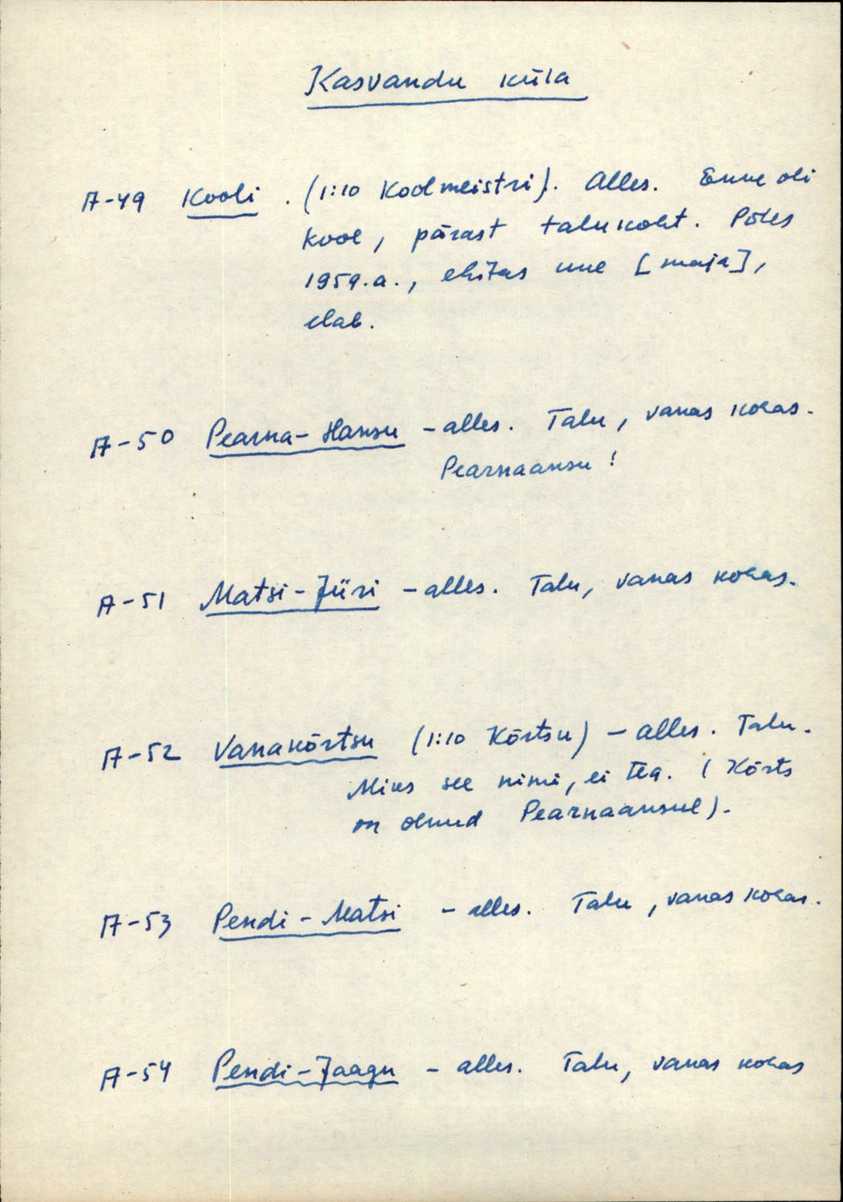 Kasvandu küla
A-49 Kooli. (1:10 Koolmeistri). Alles. Enne oli
kool, pärast talukoht. Põles
1959.a., ehitas uue [maja],
elab.
A-50 Pearna-Hansu - alles. Talu, vanas kohas.
Pearnaansu!
A-51 Matsi-Jüri - alles. Talu, vanas kohas.
A-52 Vanakõrtsu (1:10 Kõrtsu) - alles. Talu.
Miks see nimi, ei tea. (Kõrts
on olnud Pearnaansul).
A-53 Pendi-Matsi - alles. Talu, vanas kohas.
A-54 Pendi-Jaagu - alles. Talu, vanas kohas